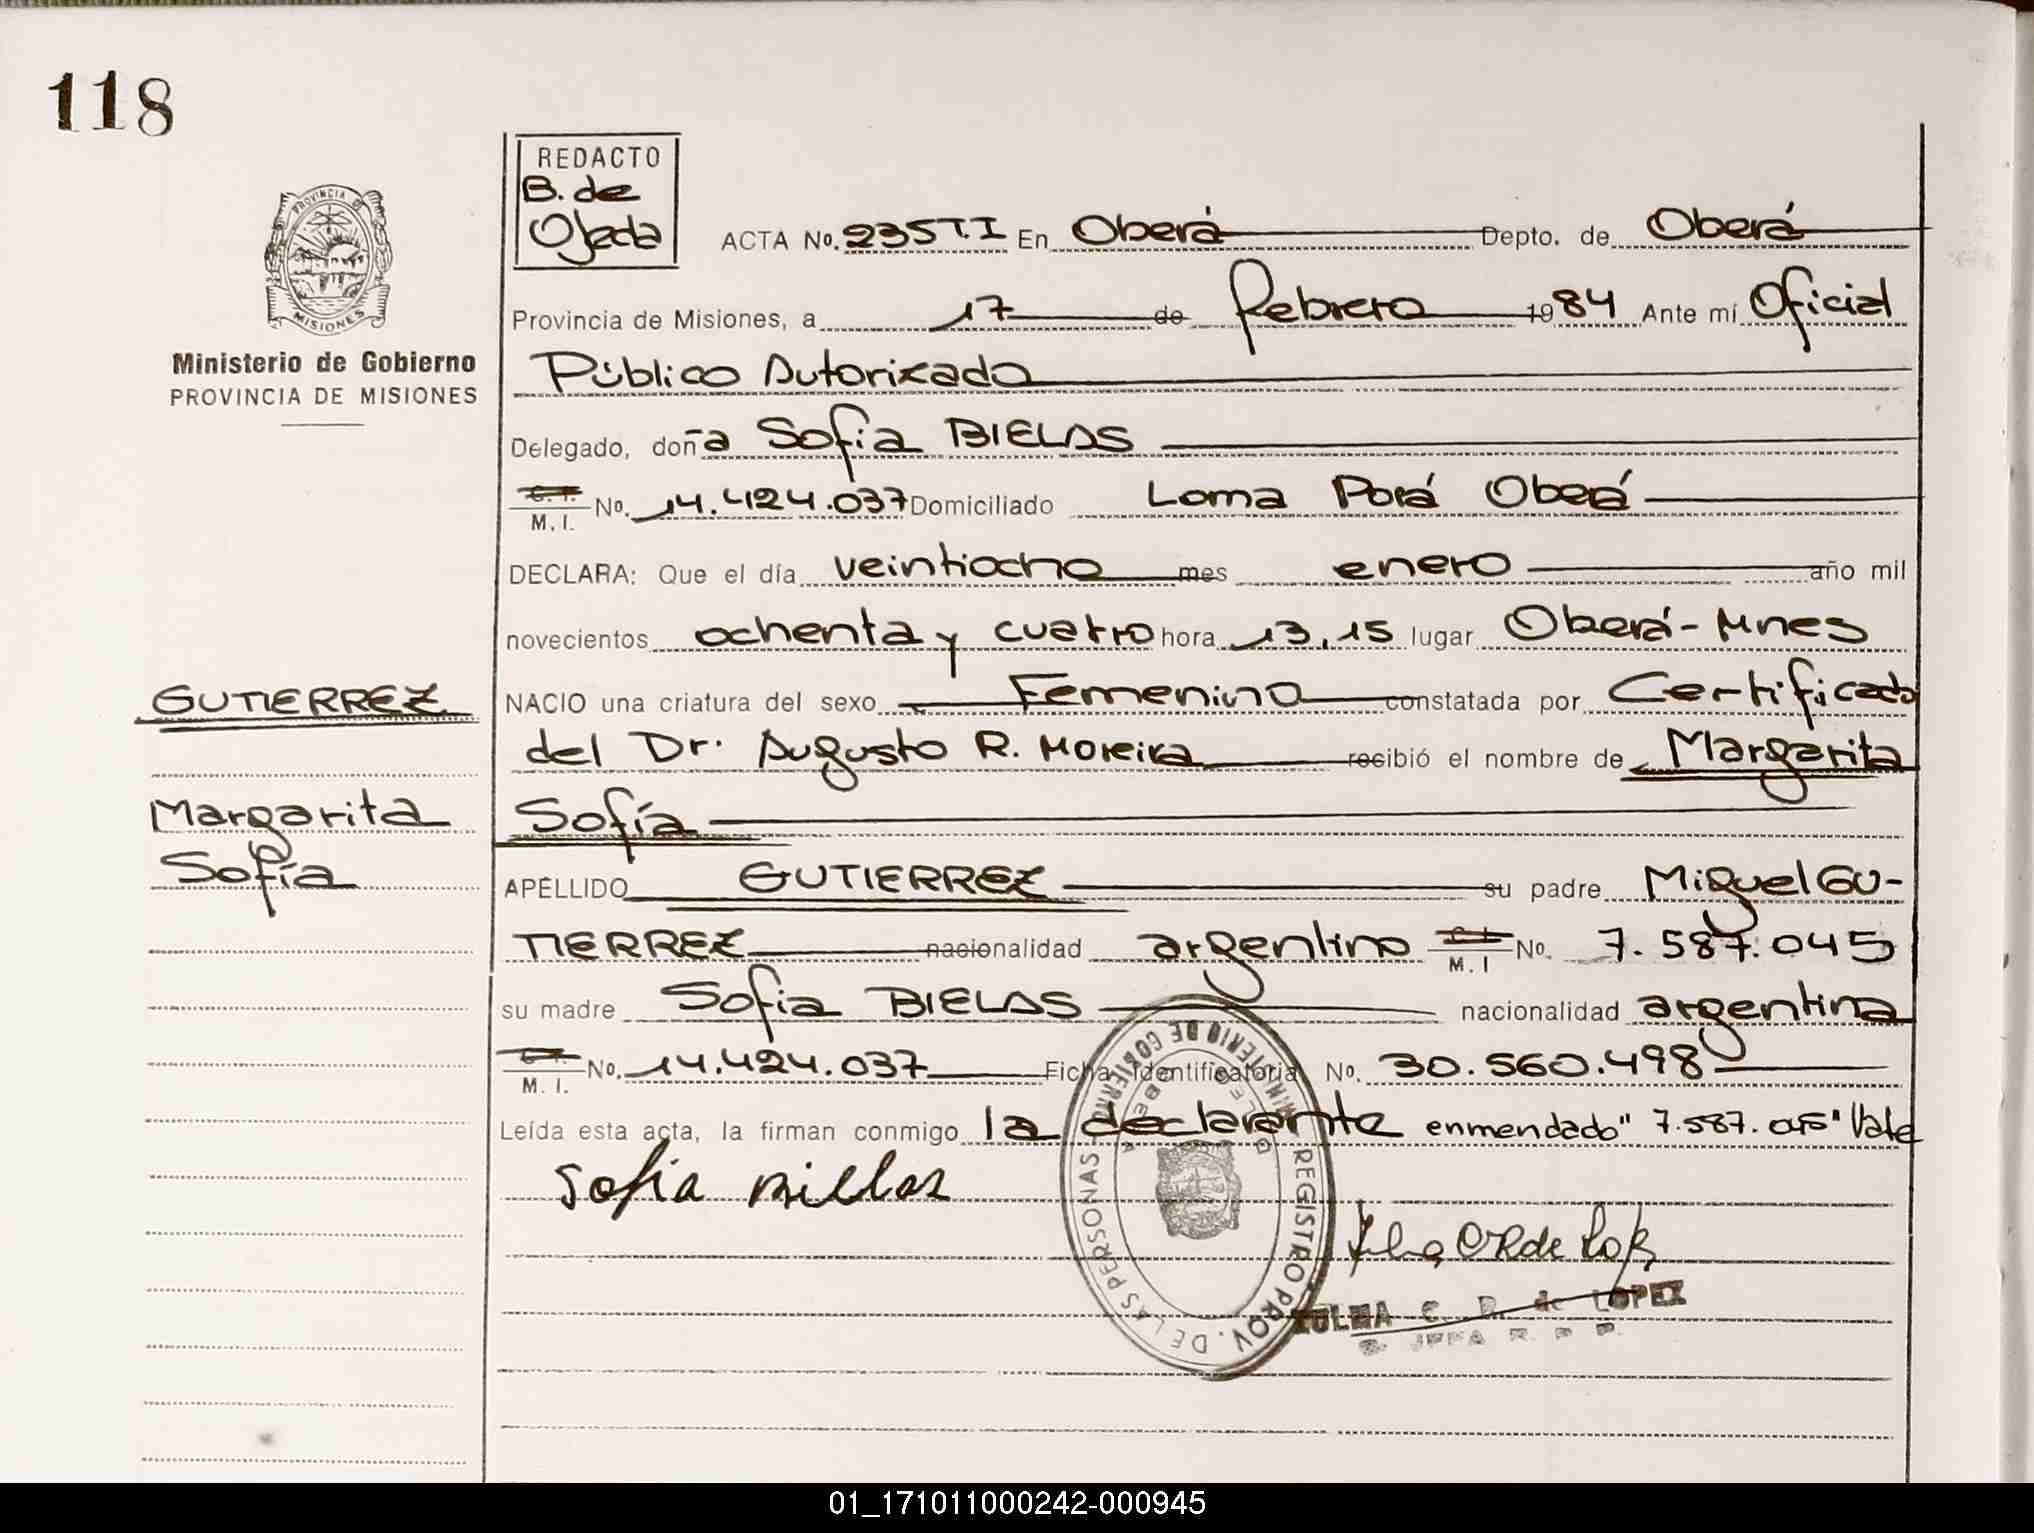 118
PROVINCIA DE
MISIONES
Ministerio de Gobierno
PROVINCIA DE MISIONES
GUTIERREZ
Margarita
Sofía
REDACTO
B. de
Ojeda
ACTA No. 235 T.I En Oberá Depto. de Oberá
Provincia de Misiones, a 17 de febrero 1984 Ante mí Oficial
Público Autorizado
Delegado, doña Sofía BIELAS
C. I. M. I. No. 14.424.037 Domiciliado Loma Porá Oberá
DECLARA: Que el día veintiocho mes enero año mil
novecientos ochenta y cuatro hora 13,15 lugar Oberá-Mnes
NACIO una criatura del sexo Femenino constatada por Certificado
del Dr. Augusto R. Moreira recibió el nombre de Margarita
Sofía
APELLIDO GUTIERREZ su padre Miguel GU-
TIERREZ nacionalidad argentino C. I. M. I No. 7.587.045
su madre Sofia BIELAS nacionalidad argentina
C. I. M. I. No. 14.424.037 Ficha Identificatoria No. 30.560.498
Leída esta acta, la firman conmigo la declarante enmendado "7.587.045" Vale
Sofia Biellas
MINISTERIO DE GOBIERNO
REGISTRO PROV. DE LAS PERSONAS
ZULMA C. R. de LOPEZ
JEFA R. P. P.
01_171011000242-000945